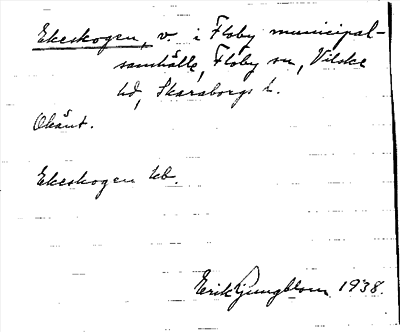 Ekeskogen, v. i Floby municipal-
samhälle, Floby sn, Vilske
hd, Skaraborgs l.
Okänt.
Ekeskogen kb.
Erik Ljungblom 1938.